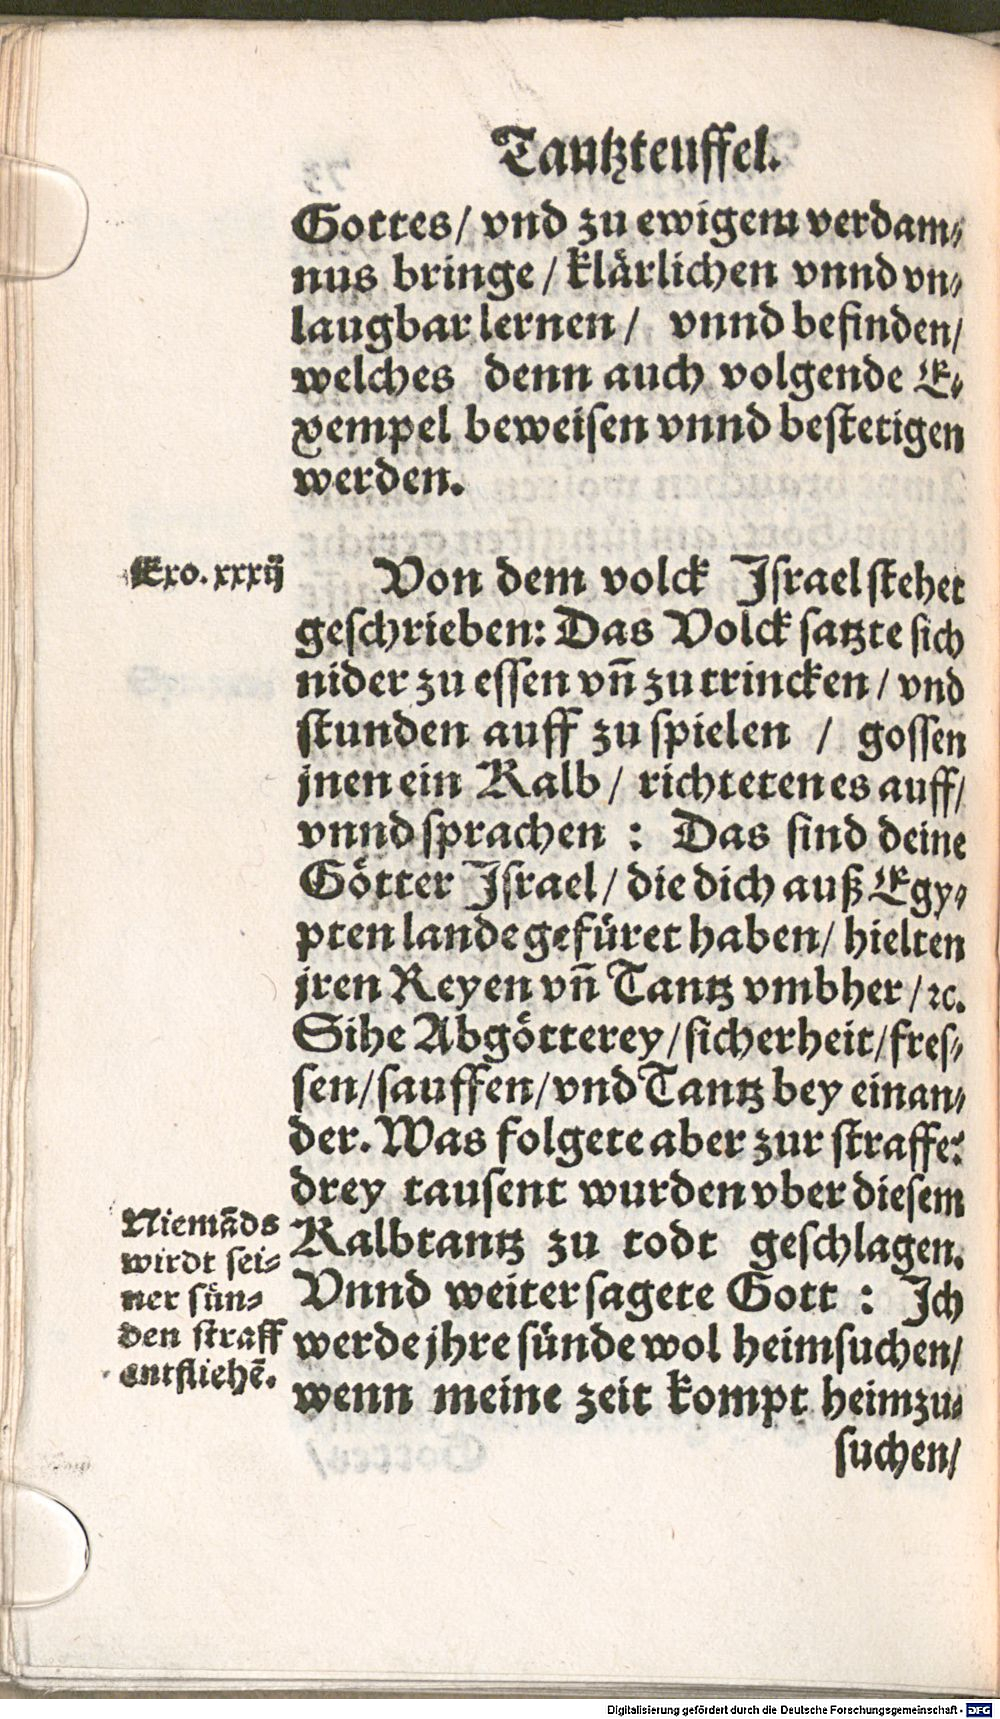 Tantzteuffel.
Gottes/ vnd zu ewigem verdam⸗
nus bringe/ klärlichen vnnd vn⸗
laugbar lernen/ vnnd befinden/
welches denn auch volgende E⸗
xempel beweisen vnnd bestetigen
werden.
Exo. xxxij
Von dem volck Israel stehet
geschrieben: Das Volck satzte sich
nider zu essen vñ zu trincken/ vnd
stunden auff zu spielen / gossen
jnen ein Kalb/ richteten es auff/
vnnd sprachen : Das sind deine
Götter Israel/ die dich auß Egy⸗
pten lande gefüret haben/ hielten
jren Reyen vñ Tantz vmbher/ ꝛc.
Sihe Abgötterey/ sicherheit/ fres⸗
sen/ sauffen/ vnd Tantz bey einan⸗
der. Was folgete aber zur straffe?
drey tausent wurden vber diesem
Kalbtantz zu todt geschlagen.
Vnnd weiter sagete Gott : Ich
werde jhre sünde wol heimsuchen/
wenn meine zeit kompt heimzu⸗
suchen/
Niemãds
wirdt sei⸗
ner sün⸗
den straff
entfliehẽ.
Digitalisierung gefördert durch die Deutsche Forschungsgemeinschaft - DFG